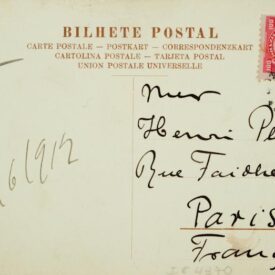 BILHETE POSTAL
CARTE POSTALE — POSTKART — CORRESPONDENZKART
CARTOLINA POSTALE — TARJETA POSTAL
UNION POSTALE UNIVERSELLE
Henri Pe
Rue Faidhe
Paris
Franç
6/912